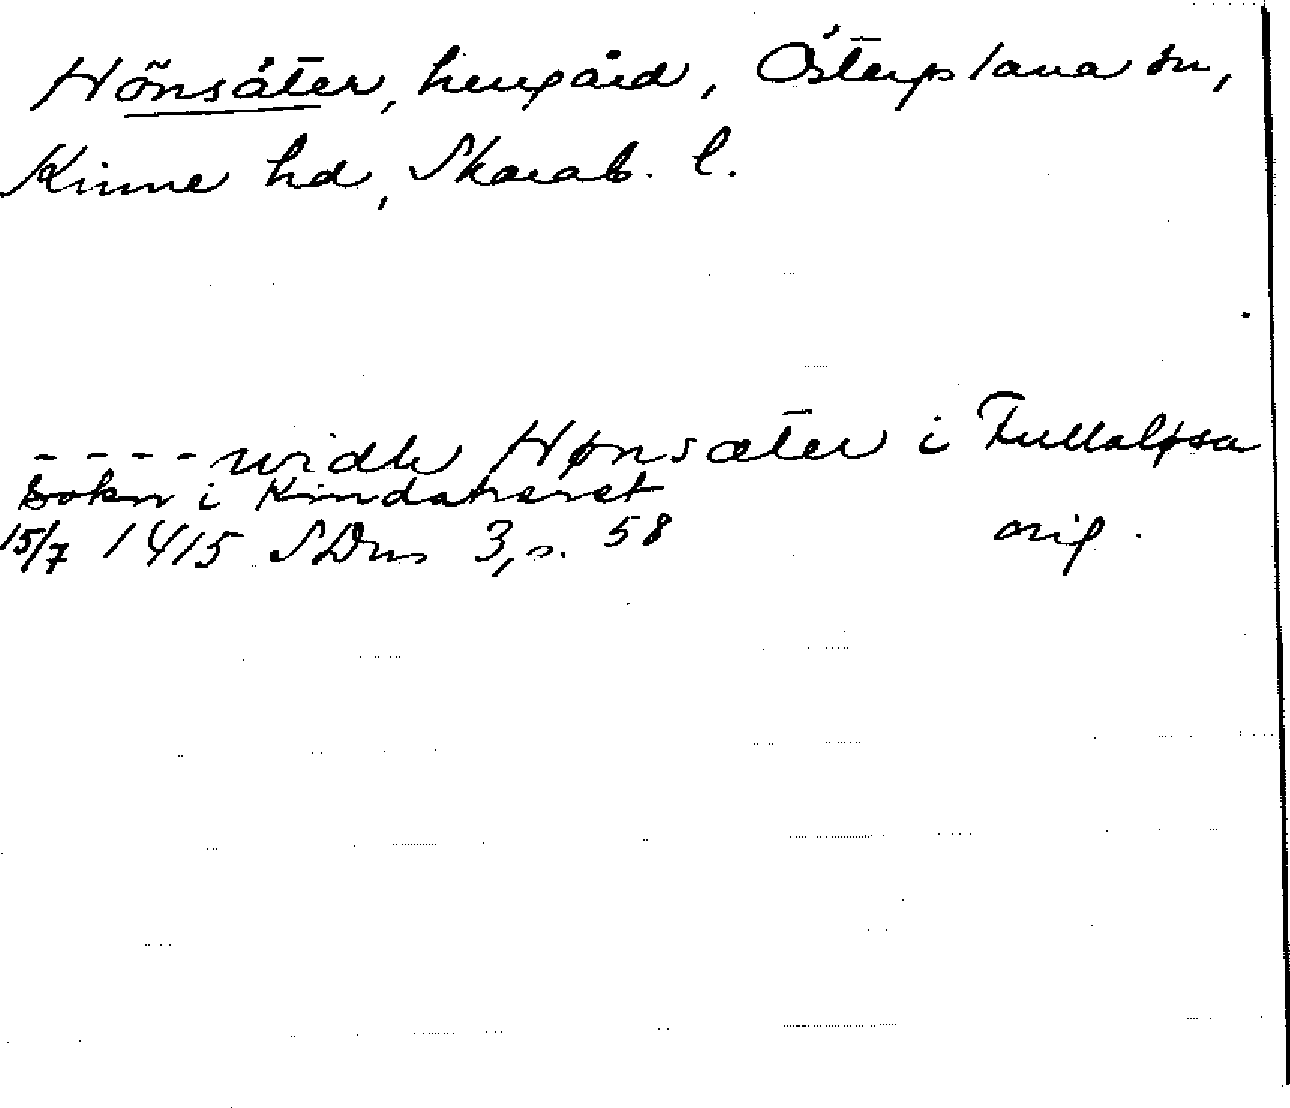 Hönsäter, herrgård, Österplana sn,
Kinne hd, Skarab. l.
- - - - widh Hønsæter i Fullaløsa
sokn i Kindaheret
15/7 1415 SDns 3, s. 58 orig.